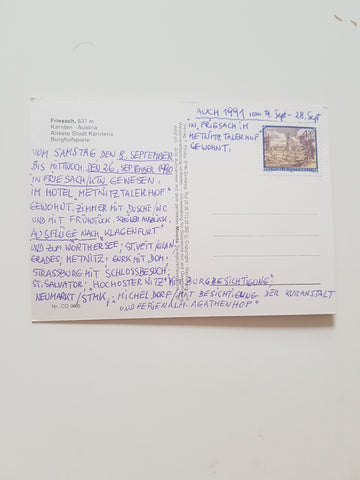 Friesach, 637 m
Kärnten · Austria
Älteste Stadt Kärntens
Burghofspiele
VOM SAMSTAG DEN 8. SEPTEMBER
BIS MITTWOCH, DEN 26. SEPTEMBER 1990
IN FRIESACH/KTN GEWESEN.
IM HOTEL METNITZTALERHOF
GEWOHNT. ZIMMER MIT DUSCHE/WC
UND MIT FRÜHSTÜCK.
AUSFLÜGE NACH, KLAGENFURT
UND ZUM WÖRTHERSEE; ST.VEIT/GLAN
GRADES; METNITZ; GURK MIT DOM,
STRASSBURG MIT SCHLOSSBESUCH;
ST. SALVATOR; "HOCHOSTERWITZ" M. BURGBESICHTIGUNG;
NEUMARKT/STMK.; MICHELDORF/MIT BESICHTIGUNG DER KURANSTALT
UND FERIENALM-AGATHENHOF"
AUCH 1991 vom 14. Sept - 28. Sept
IN FRIESACH IM
METNITZTALERHOF
GEWOHNT.